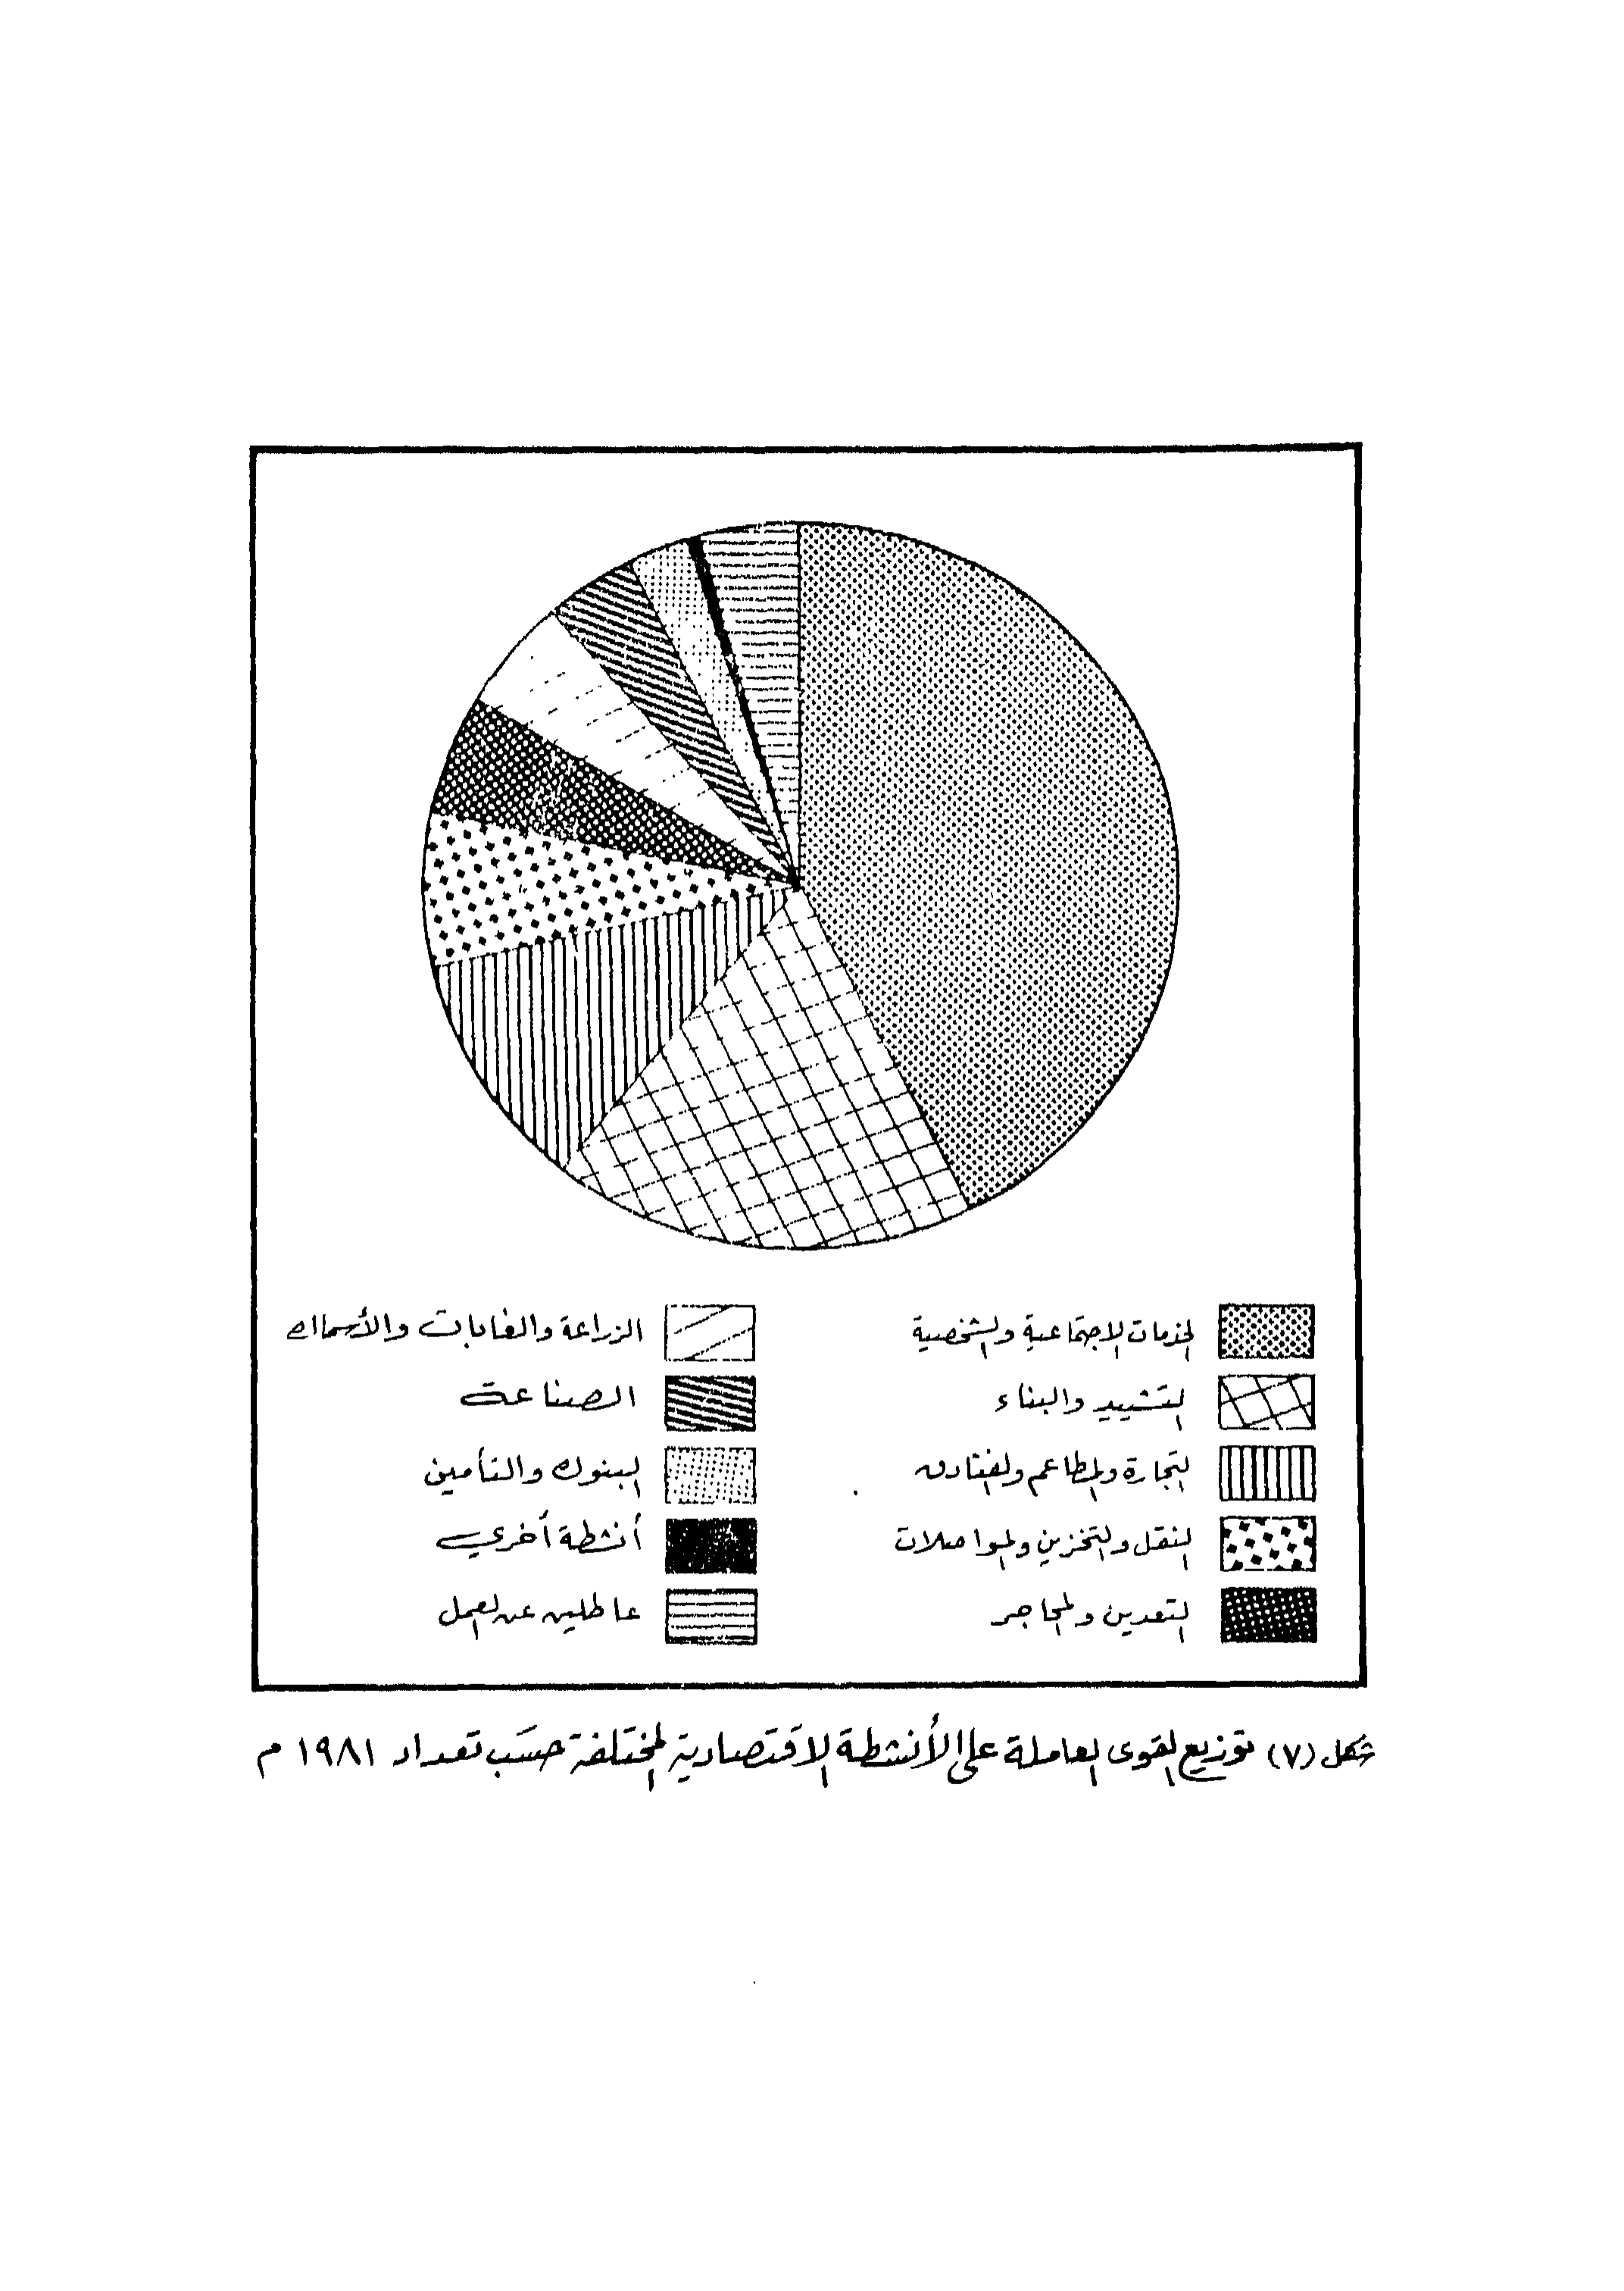 الخدمات الاجتماعية والشخصية
التشييد والبناء
التجارة والمطاعم والفنادق
النقل والتخزين والمواصلات
التعدين والمحاجر
الزراعة والغابات والأسماك
الصناعة
البنوك والتأمين
أنشطة أخرى
عاطلين عن العمل
شكل (٧) توزيع القوى العاملة على الأنشطة الاقتصادية المختلفة حسب تعداد ١٩٨١ م